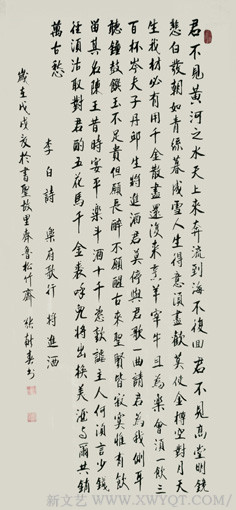 君不見黃河之水天上來奔流到海不復回君不見高堂明鏡
悲白髮朝如青絲暮成雪人生得意須盡歡莫使金樽空對月天
生我材必有用千金散盡還復來烹羊宰牛且為樂會須一飲三
百杯岑夫子丹邱生將進酒君莫停與君歌一曲請君為我側耳
聽鐘鼓饌玉不足貴但願長醉不願醒古來聖賢皆寂寞惟有飲
留其名陳王昔時宴平樂斗酒十千恣歡謔主人何須言少錢
徑須沽取對君酌五花馬千金裘呼兒將出換美酒與爾共銷
萬古愁
李白詩 樂府歌行 將進酒
歲在戊戌夜於書聖故里齊魯松竹齋
新文艺 WWW.XWYQT.COM